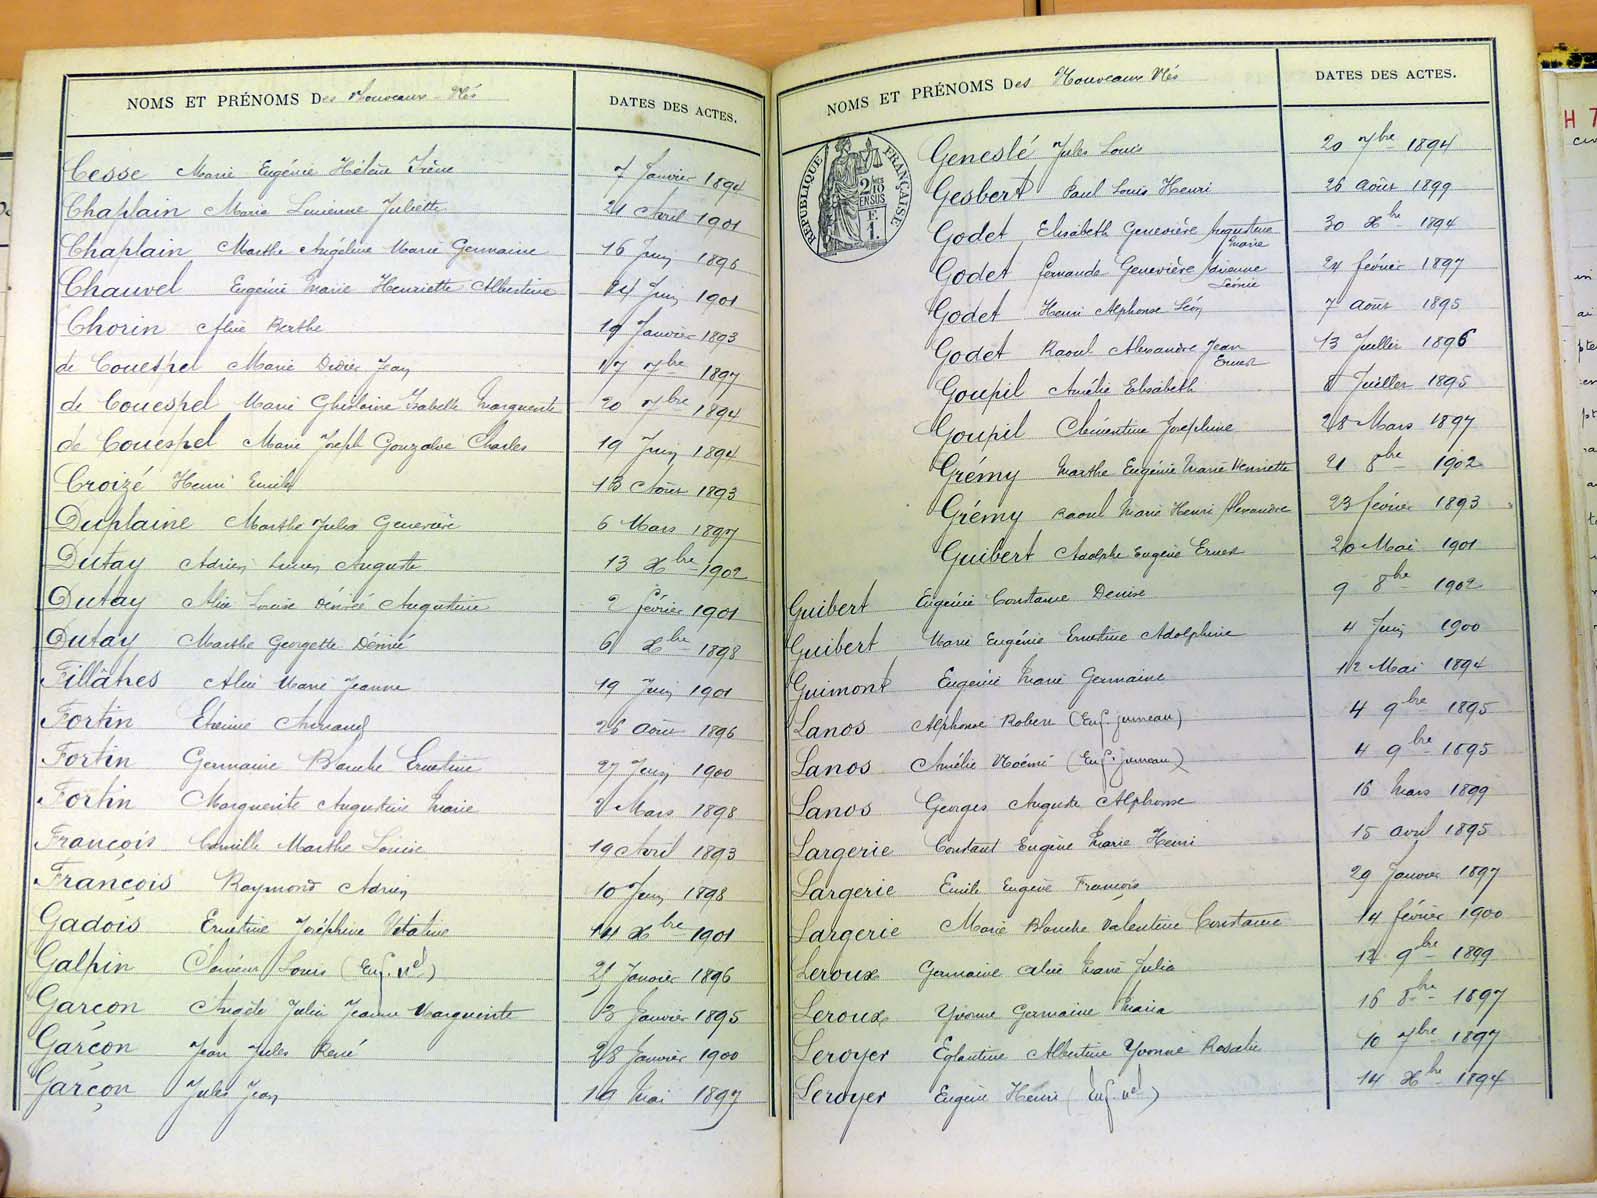 NOMS ET PRÉNOMS Des Nouveaux-Nés
DATES DES ACTES.
Cesse Marie Eugénie Hélène Irène 7 Janvier 1894
Chaplain Maria Lucienne Juliette 21 Avril 1901
Chaplain Marthe Angéline Marie Germaine 16 Juin 1896
Chauvel Eugénie Marie Henriette Albertine 24 Juin 1901
Chorin Alice Berthe 19 Janvier 1893
de Couespel Marie Didier Jean 17 7bre 1897
de Couespel Marie Ghislaine Isabelle Marguerite 20 7bre 1894
de Couespel Marie Joseph Gonzalve Charles 19 Juin 1894
Croizé Henri Emile 13 Août 1893
Duplaine Marthe Julia Geneviève 6 Mars 1897
Dutay Adrien Lucien Auguste 13 Xbre 1902
Dutay Alice Louise Désirée Augustine 2 février 1901
Dutay Marthe Georgette Désirée 6 Xbre 1898
Fillâtres Alice Marie Jeanne 19 Juin 1901
Fortin Etienne Armand 26 Août 1896
Fortin Germaine Blanche Ernestine 27 Juin 1900
Fortin Marguerite Augustine Marie Mars 1898
François Camille Marthe Louise 19 Avril 1893
François Raymond Adrien 10 Juin 1898
Gadois Ernestine Joséphine Vitaline 14 Xbre 1901
Galpin Clément Louis (Enf. nel) 21 Janvier 1896
Garçon Angèle Julia Jeanne Marguerite 3 Janvier 1895
Garçon Jean Jules René 28 Janvier 1900
Garçon Jules Jean 19 Mai 1897
NOMS ET PRÉNOMS Des Nouveaux Nés
DATES DES ACTES.
RÉPUBLIQUE FRANÇAISE
2/10 EN SUS
F. 1.
Geneslé Jules Louis 20 7bre 1894
Gesbert Paul Louis Henri 26 Août 1899
Godet Elisabeth Geneviève Augustine 30 Xbre 1894
Marie
Godet Fernande Geneviève 24 février 1897
Léonie
Godet Henri Alphonse Léon 7 Août 1895
Godet Raoul Alexandre Jean 13 Juillet 1896
Ernest
Goupil Amélie Elisabeth 8 Juillet 1895
Goupil Clémentine Joséphine 28 Mars 1897
Grémy Marthe Eugénie Marie Henriette 21 8bre 1902
Grémy Raoul Marie Henri Alexandre 23 février 1893
Guibert Adolphe Eugène Ernest 20 Mai 1901
Guibert Eugénie Constance Denise 9 8bre 1902
Guibert Marie Eugénie Ernestine Adolphine 4 Juin 1900
Guimont Eugénie Marie Germaine 12 Mai 1894
Lanos Alphonse Robert (Enf. jumeau) 4 9bre 1895
Lanos Amélie Noémie (Enf. jumeau) 4 9bre 1895
Lanos Georges Auguste Alphonse 16 Mars 1899
Largerie Constant Eugène Marie Henri 15 avril 1895
Largerie Emile Eugène François 29 Janvier 1897
Largerie Marie Blanche Valentine Constance 14 février 1900
Leroux Germaine Alice Marie Julia 12 9bre 1899
Leroux Yvonne Germaine Maria 16 8bre 1897
Leroyer Eglantine Albertine Yvonne Rosalie 10 7bre 1897
Leroyer Eugène Henri (Enf. nel) 14 Xbre 1894
H 7